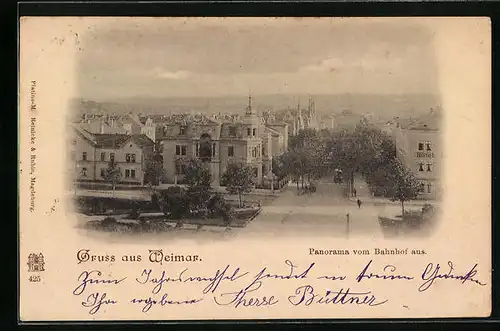 Platino-M. Reinicke & Rubin, Magdeburg.
Hôtel
Gruss aus Weimar.
Panorama vom Bahnhof aus.
425
Zum Jahreswechsel sendet in treuem Gedenken
Ihre ergebene Therese Büttner